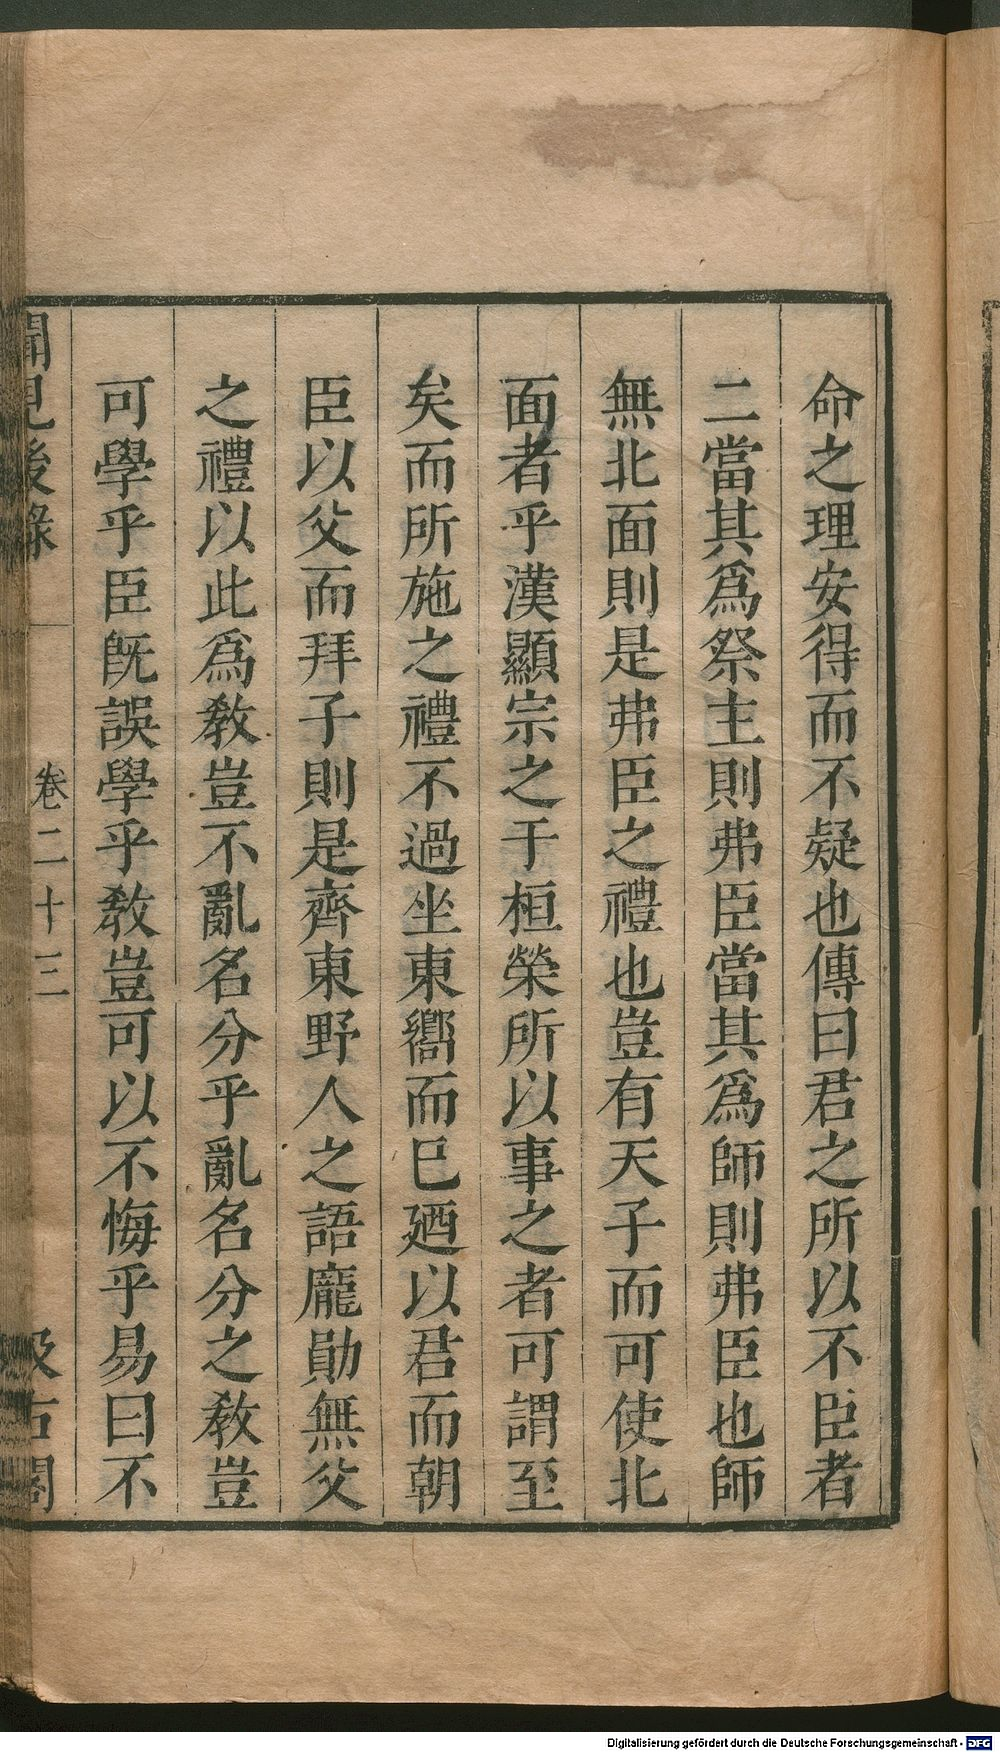 命之理安得而不疑也傳曰君之所以不臣者
二當其爲祭主則弗臣當其爲師則弗臣也師
無北面則是弗臣之禮也豈有天子而可使北
面者乎漢顯宗之于桓榮所以事之者可謂至
矣而所施之禮不過坐東嚮而已廼以君而朝
臣以父而拜子則是齊東野人之語龐勛無父
之禮以此爲敎豈不亂名分乎亂名分之敎豈
可學乎臣旣誤學乎敎豈可以不悔乎易曰不
聞見後錄 卷二十三 汲古閣
Digitalisierung gefördert durch die Deutsche Forschungsgemeinschaft - DFG